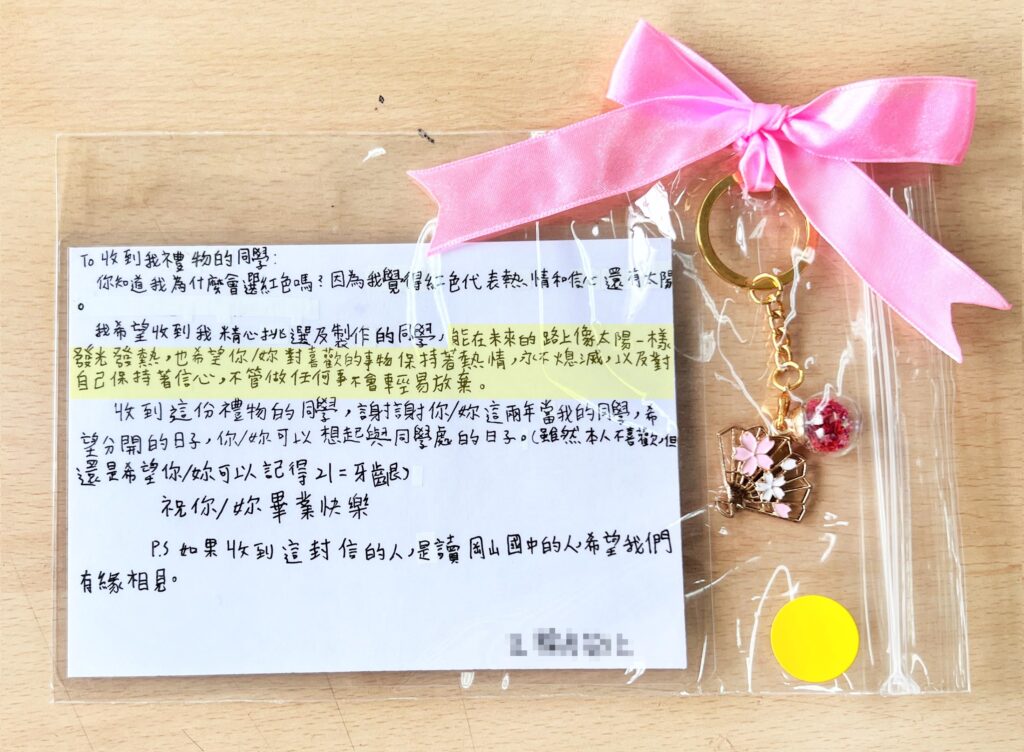 To 收到我禮物的同學:
你知道我為什麼會選紅色嗎?因為我覺得紅色代表熱情和信心還有太陽
。
我希望收到我精心挑選及製作的同學,能在未來的路上像太陽一樣
發光發熱,也希望你/妳對喜歡的事物保持著熱情,永不熄滅,以及對
自己保持著信心,不管做任何事不會輕易放棄。
收到這份禮物的同學,謝謝你/妳這兩年當我的同學,希
望分開的日子,你/妳可以想起與同學處的日子。(雖然本人不喜歡,但
還是希望你/妳可以記得21=牙齦)
祝你/妳畢業快樂
P.S 如果收到這封信的人,是讀岡山國中的人,希望我們
有緣相見。